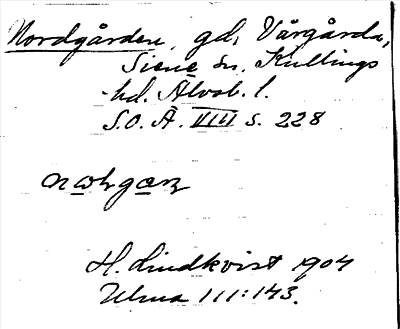 Nordgården, gd, Vårgårda,
Siene sn. Kullings
hd. Älvsb. l.
S.O. Ä. VIII s. 228
H. Lindkvist 1904
Ulma 111:143.